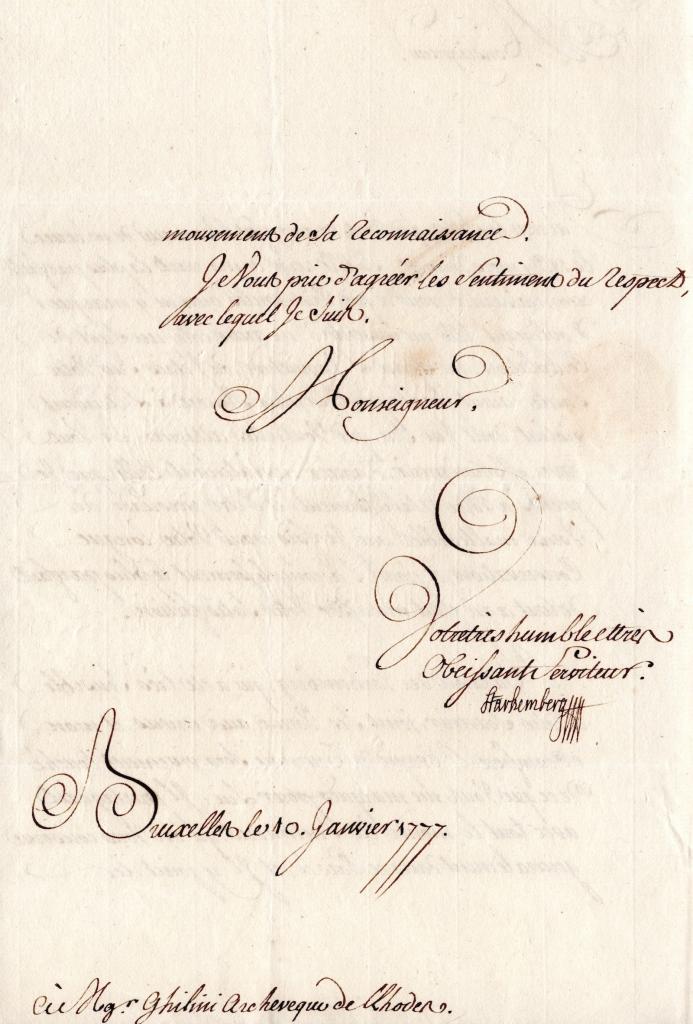 mouvement de sa reconnaissance.
Je Vous prie d'agréer les Sentiment du respect,
avec lequel Je suis.
Monseigneur.
Votre tres humble et tres
Obeissant Serviteur.
Starhemberg
Bruxelles le 10. Janvier 1777.
à Mgr. Ghilini Archeveque de Rhodes.